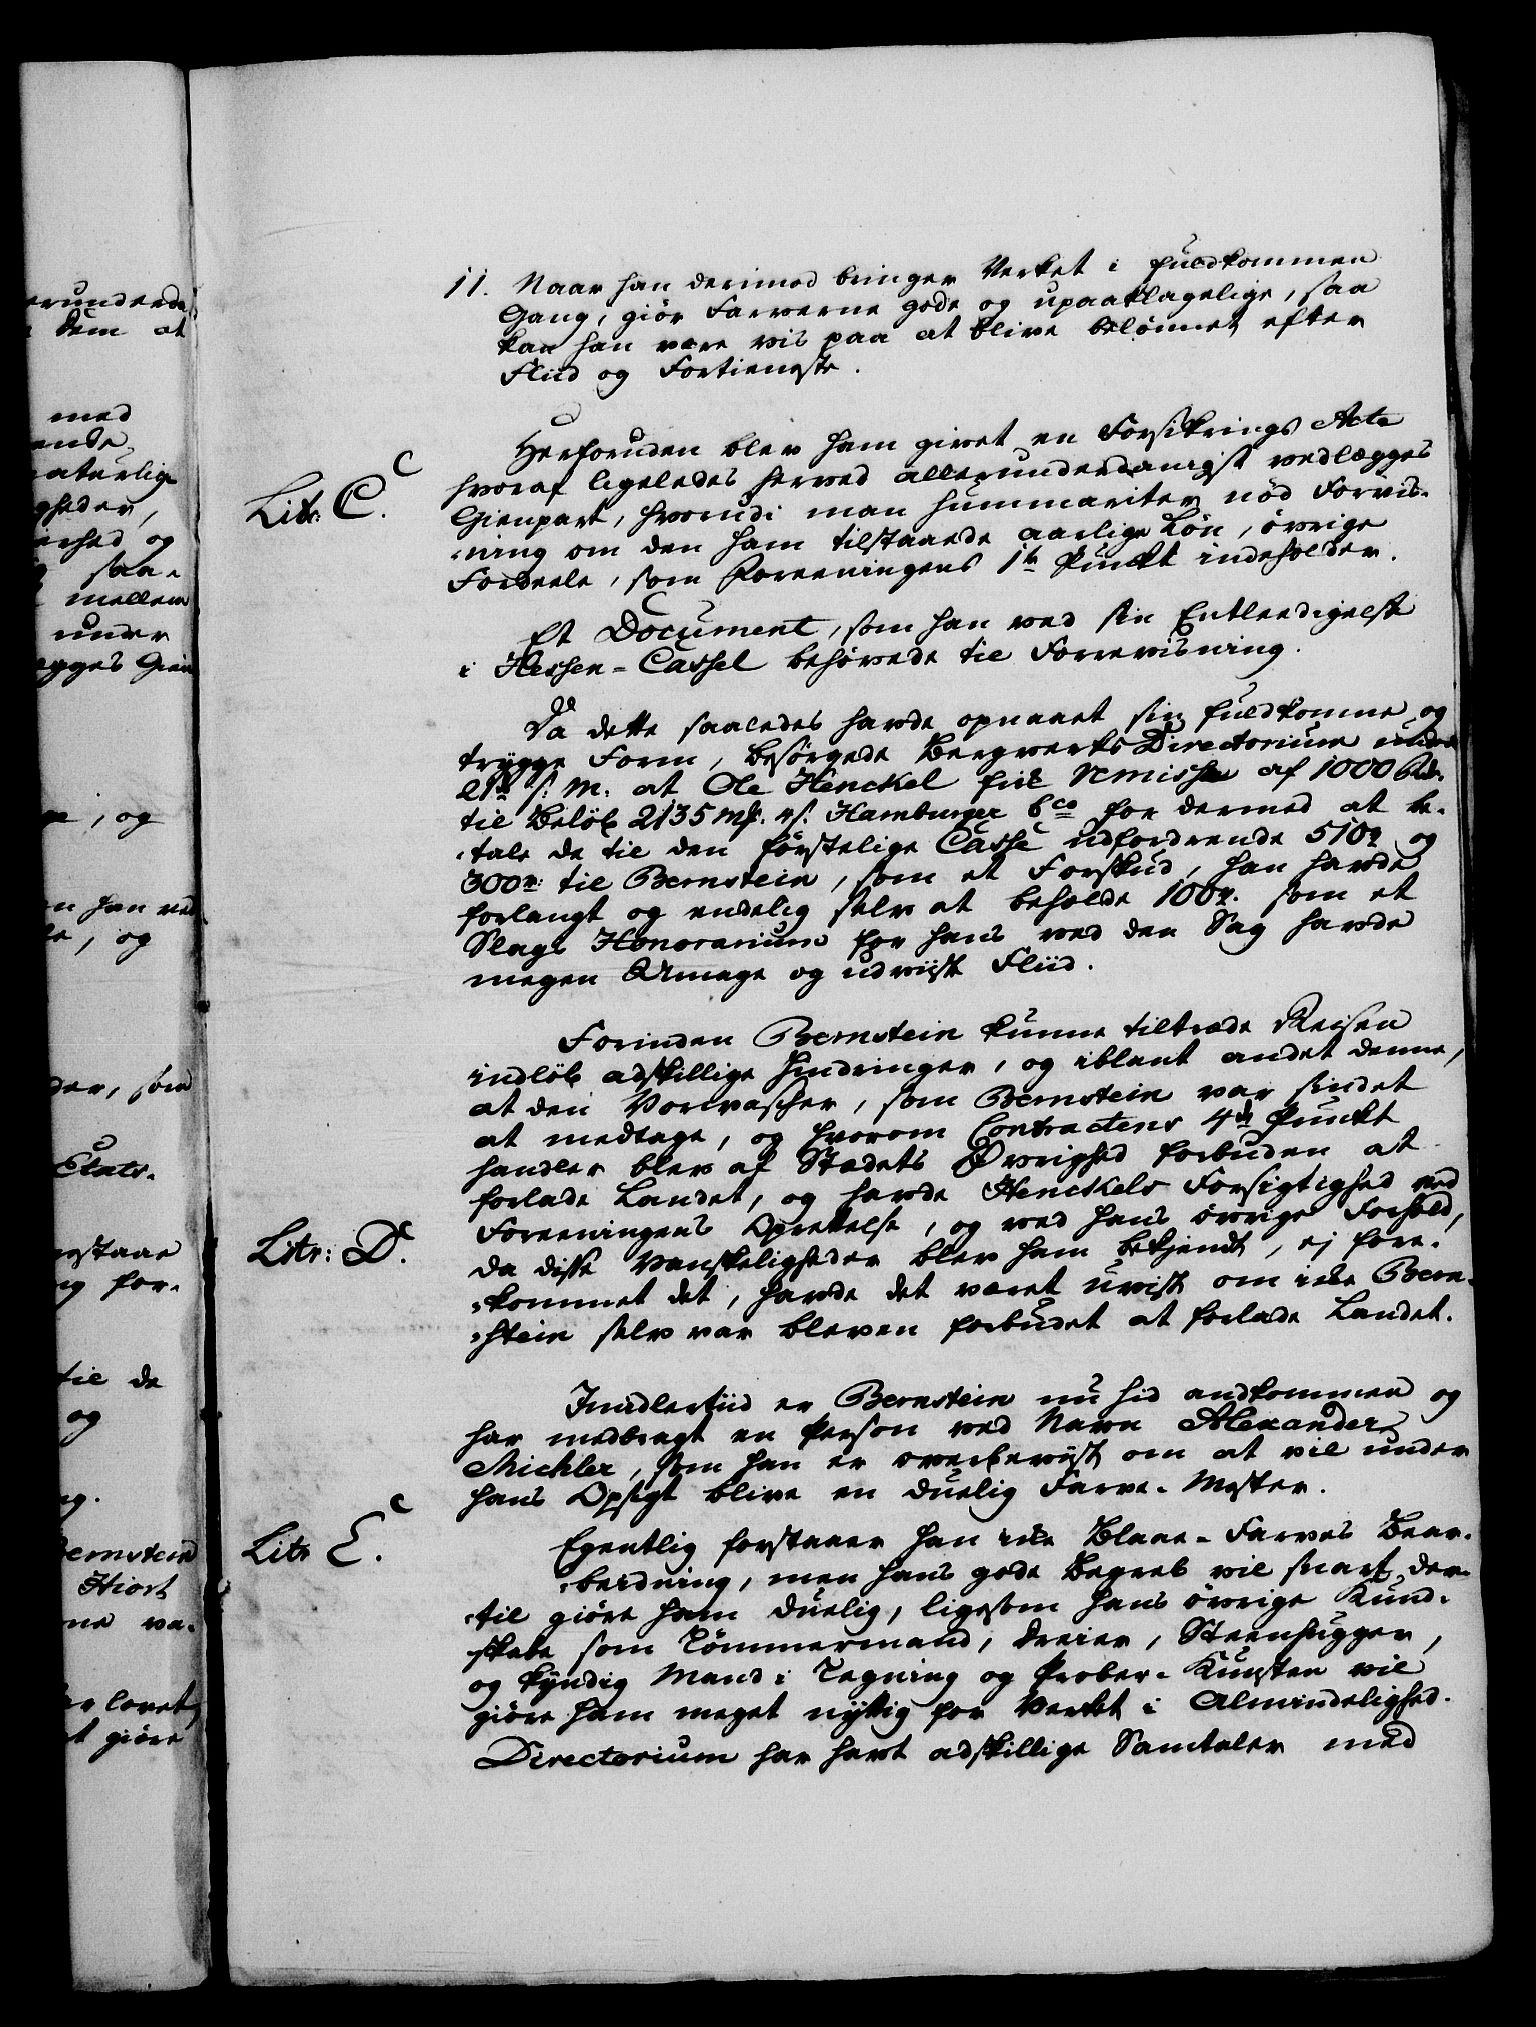 erunderda
dem at
med
ende
naturlig
gheder,
erhed og
saa-
mellem
under
egges Gien
ge, og
en han ved
te, og
der, som
Etats-
forstaae
og for-
til de
og
ng.
Bernstein
Hiort
ne va-
er lovet
at giöre
11. Naar han derimod bringer Verket i fuldkommen
Gang, giör Farverne gode og upaaklagelige, saa
kan han være vis paa at blive belönnet efter
Fliid og Fortieneste.
Herforuden blev ham givet en Forsikrings Acte
hvoraf ligeledes herved allerunderdanigst vedlægges
Litr: C.
Gienpart, hvorudi man summariter nöd Forvis-
ning om den ham tilstaaede aarlige Lön, övrige
Fordeele, som Foreeningens 1te Punct indeholder.
Et Document, som han ved sin Entleedigelse
i Hessen-Cassel behövede til Forevisning.
Da dette saaledes havde opnaaet sin fuldkomne og
trygge Form, besörgede Bergverks Directorium under
21de s: M: at Ole Henckel fik Remisse af 1000 Rdr.
til Belöb 2135 mk. 4 s. Hamburger bco for dermed at be-
tale de til den förstelige Casse udfordrende 510 r og
300 r: til Bernstein, som et Forskud, han havde
forlangt og endelig selv at beholde 100 r. som et
Slags Honorarium for hans ved den Sag havde
megen Umage og udviiste Fliid.
Forinden Bernstein kunne tiltræde Reisen
indlöb adskillige Hindringer, og iblant andet denne,
at den Vorwascher, som Bernstein var sindet
at medtage, og hvorom Contractens 4de Punct
handler blev af Stædets Øvrighed forbuden at
forlade Landet, og havde Henckels Forsigtighed ved
Litr: D.
Foreeningens Oprettelse, og ved hans övrige Forhold,
da disse Vanskeligheder blev ham bekiendt, ej fore-
kommet det, havde det været uvist om ikke Bern-
stein selv var bleven forbudet at forlade Landet.
Imidlertiid er Bernstein nu hid ankommen og
har medbragt en Person ved Navn Alexander
Michler, som han er overbeviist om at vil under
hans Opsigt blive en duelig Farve-Mester.
Litr E.
Egentlig forstaaer han ikke Blaae-Farves Bear-
beidning, men hans gode Begreb vil snart der-
til giöre ham duelig, ligesom hans övrige Kund-
skabe som Tömmermand, Dreier, Steenhugger,
og kyndig Mand i Tegning og Prober-Kunsten vil
giöre ham meget nyttig for Verket i Almindelighed.
Directorium har havt adskillige Samtaler med